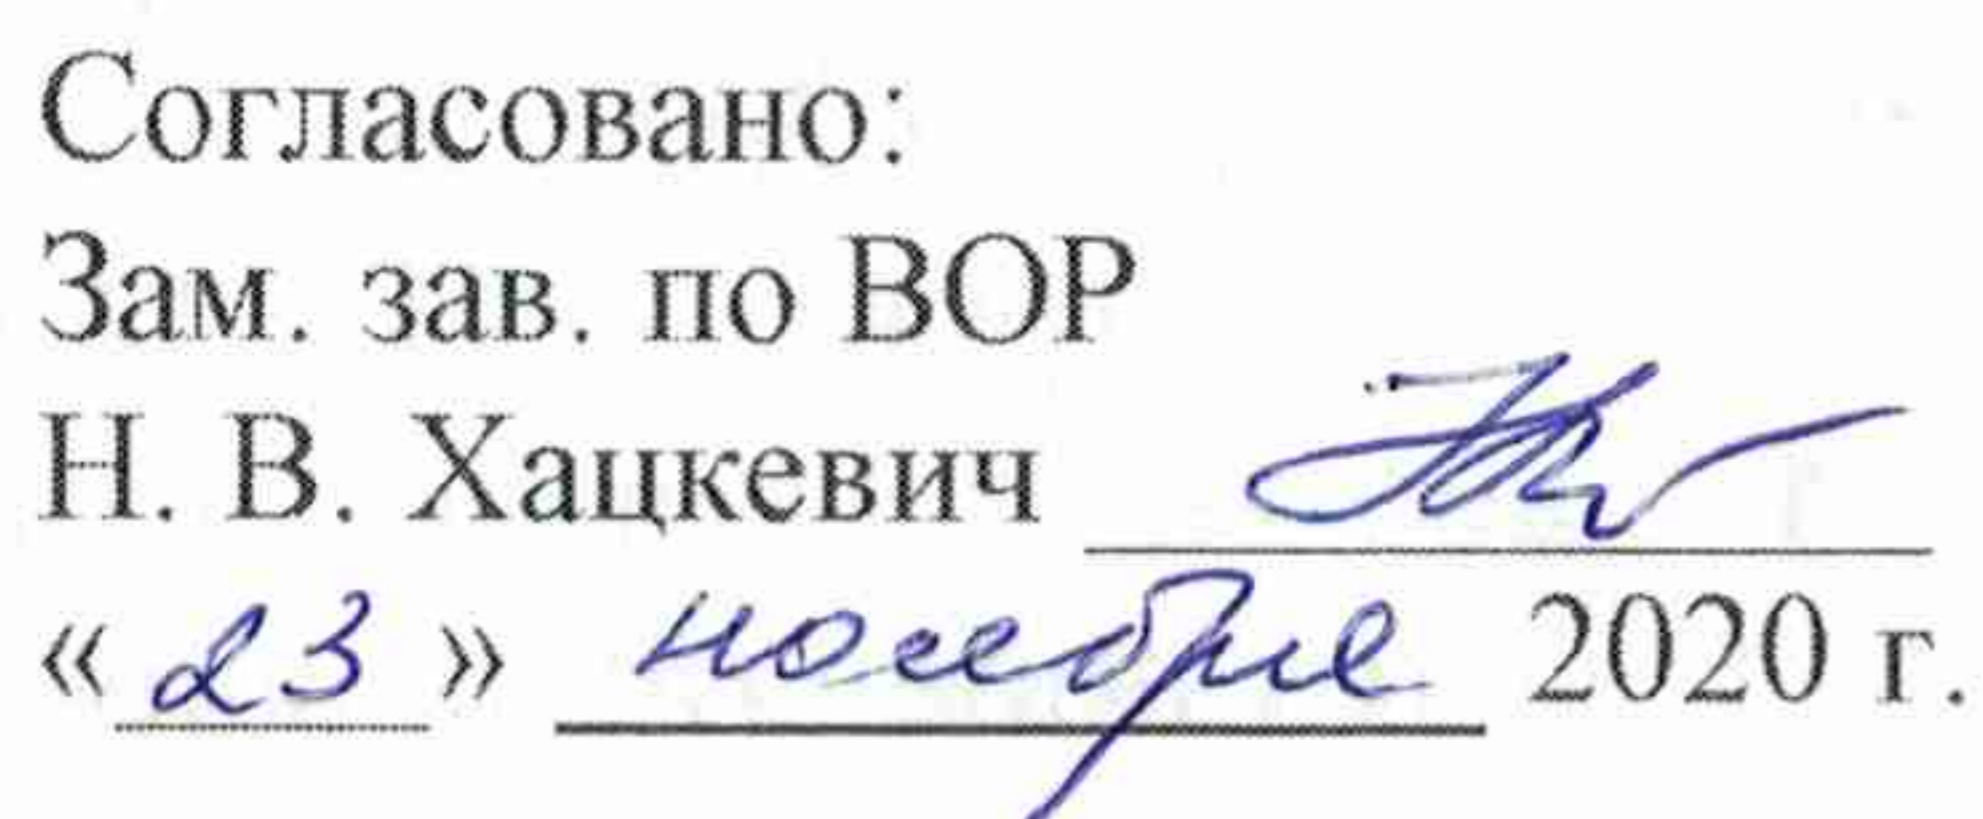 Согласовано:
Зам. зав. по ВОР
Н. В. Хацкевич
« 23 » ноября 2020 г.